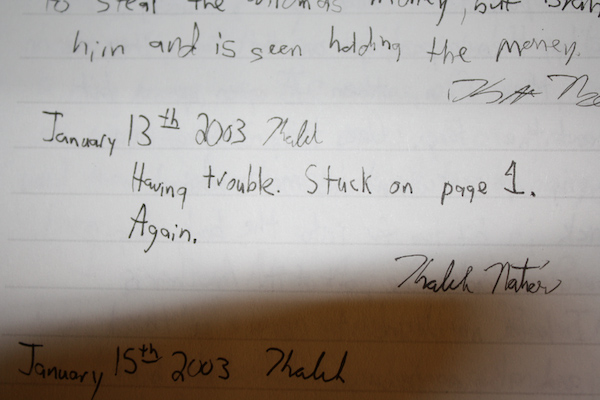 to steal the money, but
him and is seen holding the money.
January 13th 2003 Thaleh
Having trouble. Stuck on page 1.
Again.
Thaleh
January 15th 2003 Thaleh